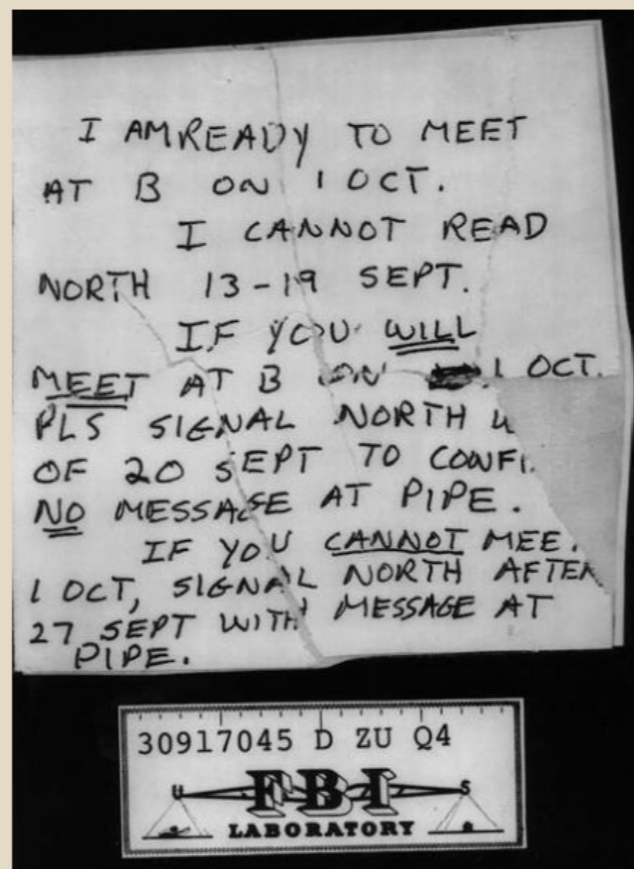 I AM READY TO MEET
AT B ON 1 OCT.
I CANNOT READ
NORTH 13-19 SEPT.
IF YOU WILL
MEET AT B ON 1 OCT.
PLS SIGNAL NORTH
OF 20 SEPT TO
NO MESSAGE AT PIPE.
IF YOU CANNOT
1 OCT, SIGNAL NORTH AFTER
27 SEPT WITH MESSAGE AT
PIPE.
30917045 D ZU Q4
U FBI S
LABORATORY